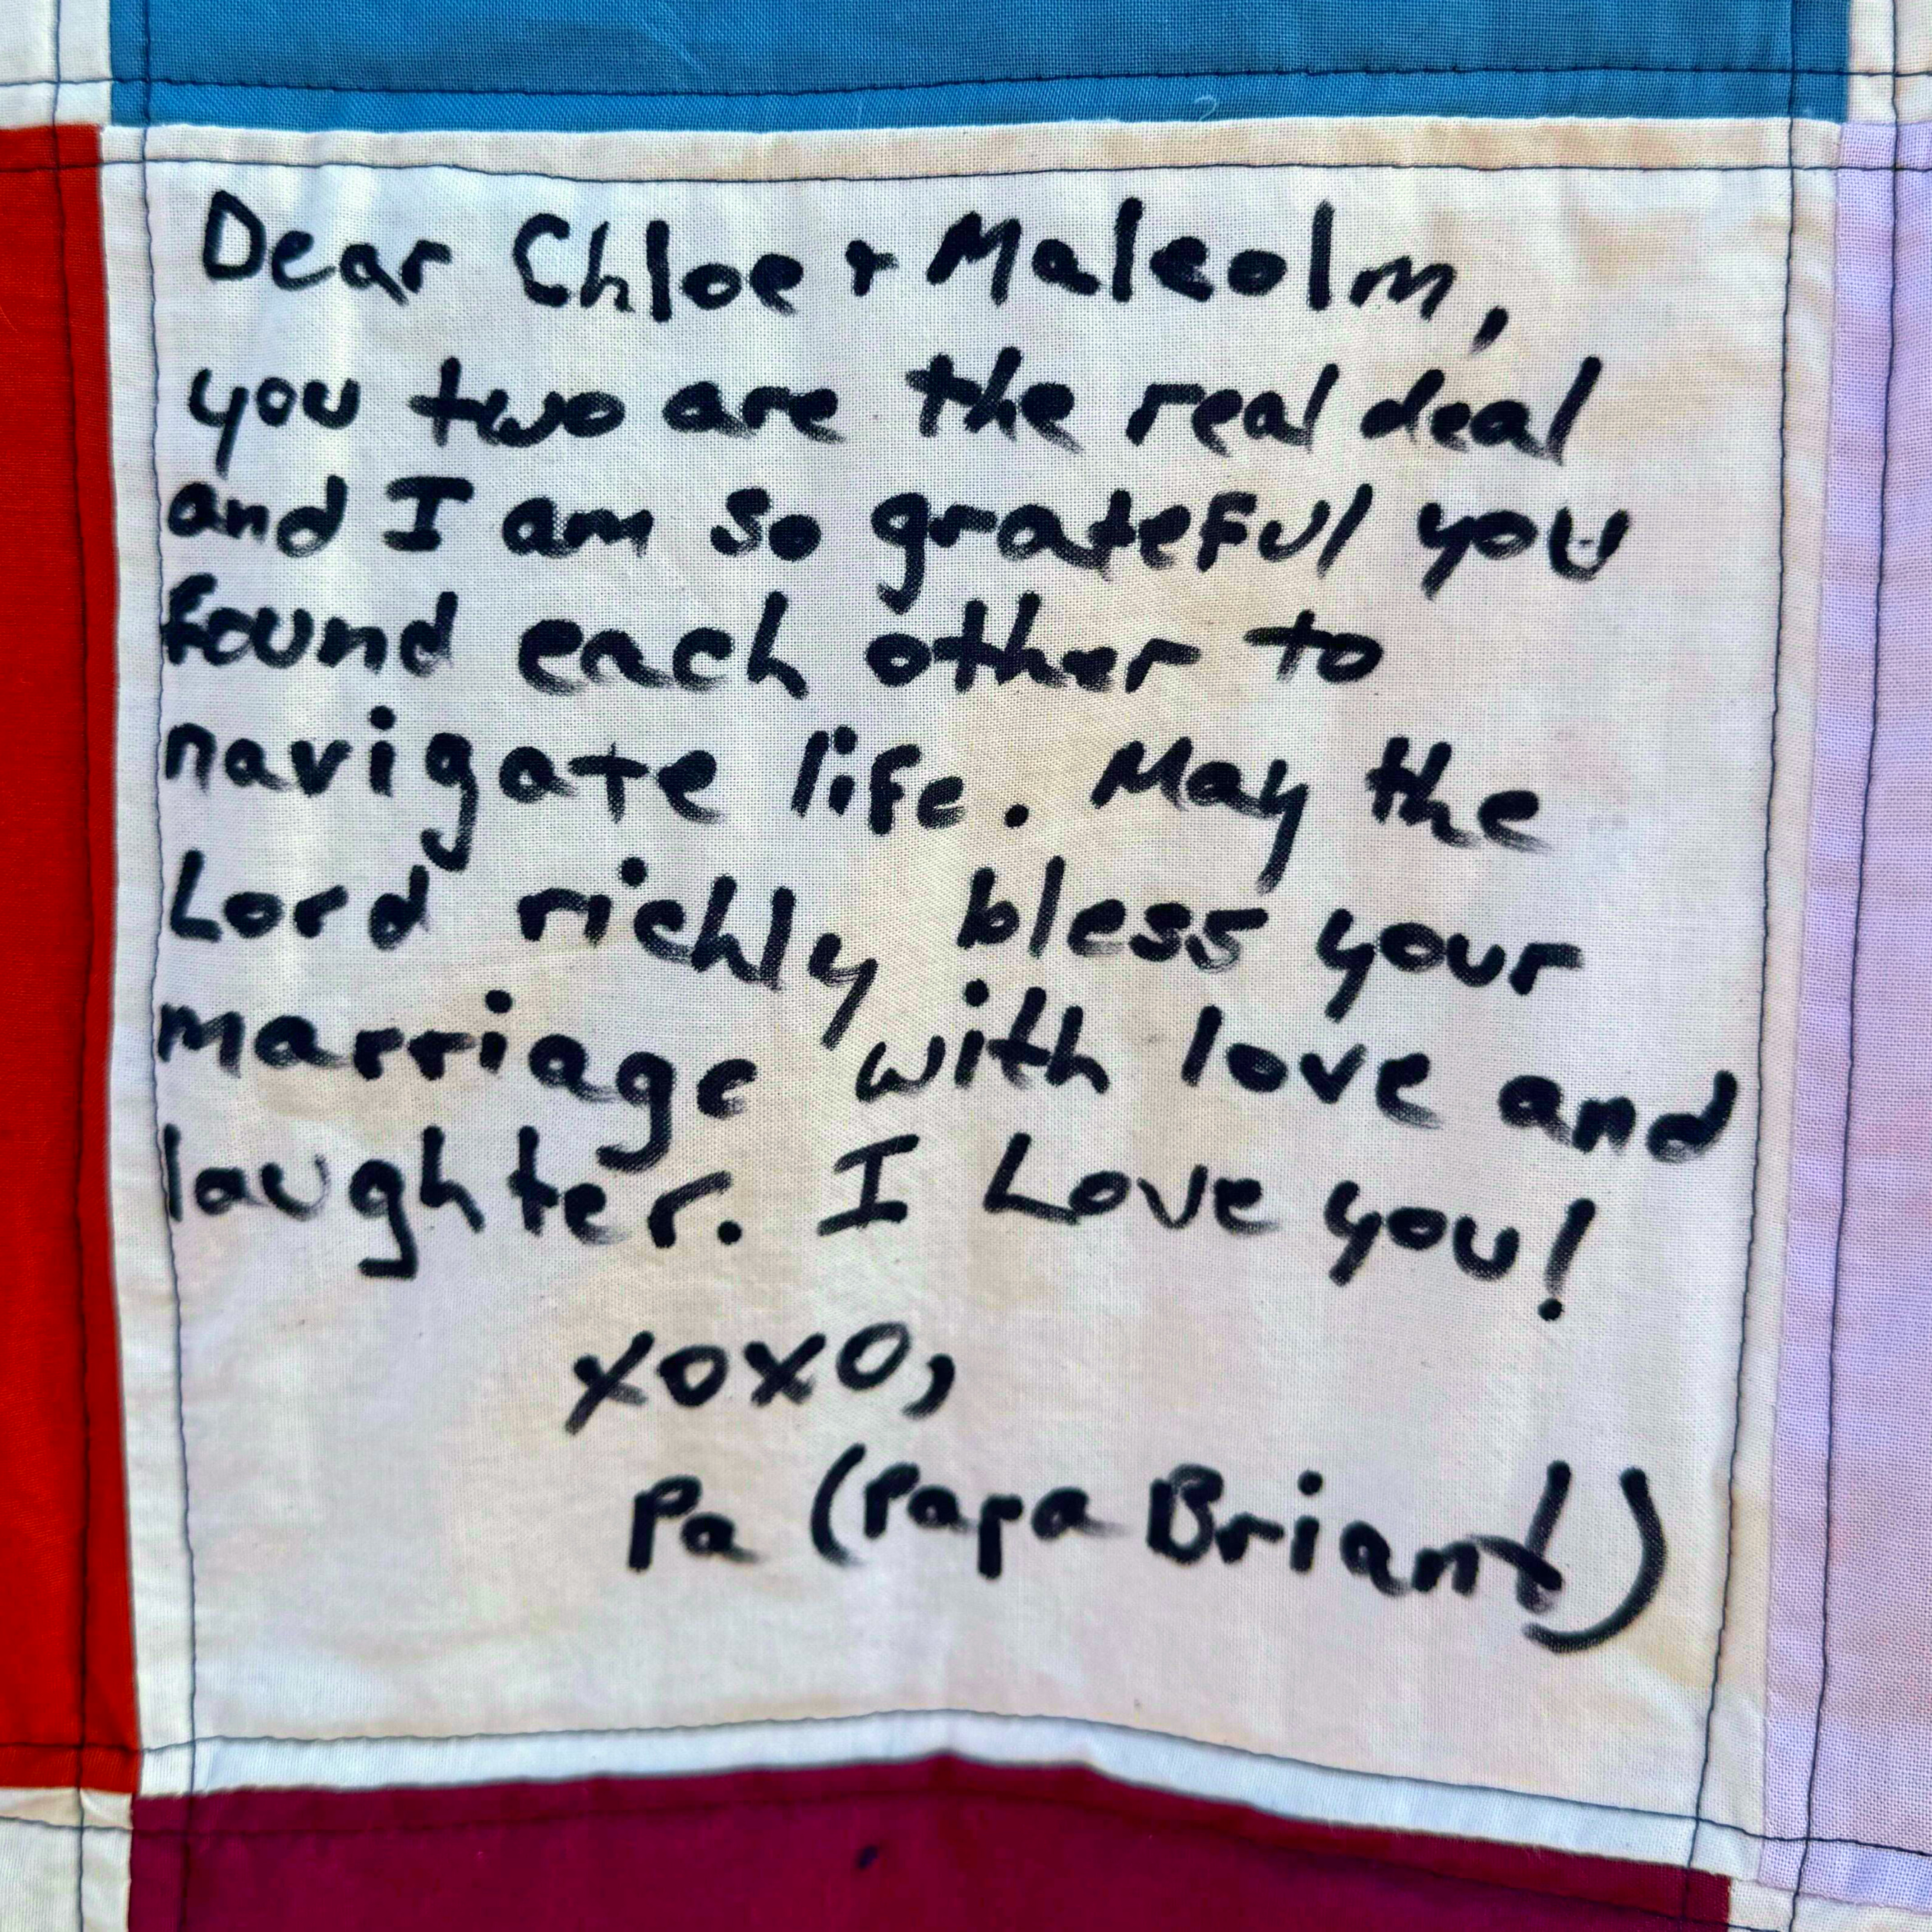 Dear Chloe + Malcolm,
you two are the real deal
and I am so grateful you
found each other to
navigate life. May the
Lord richly bless your
marriage with love and
laughter. I Love you!
xoxo,
Pa (Papa Briant)